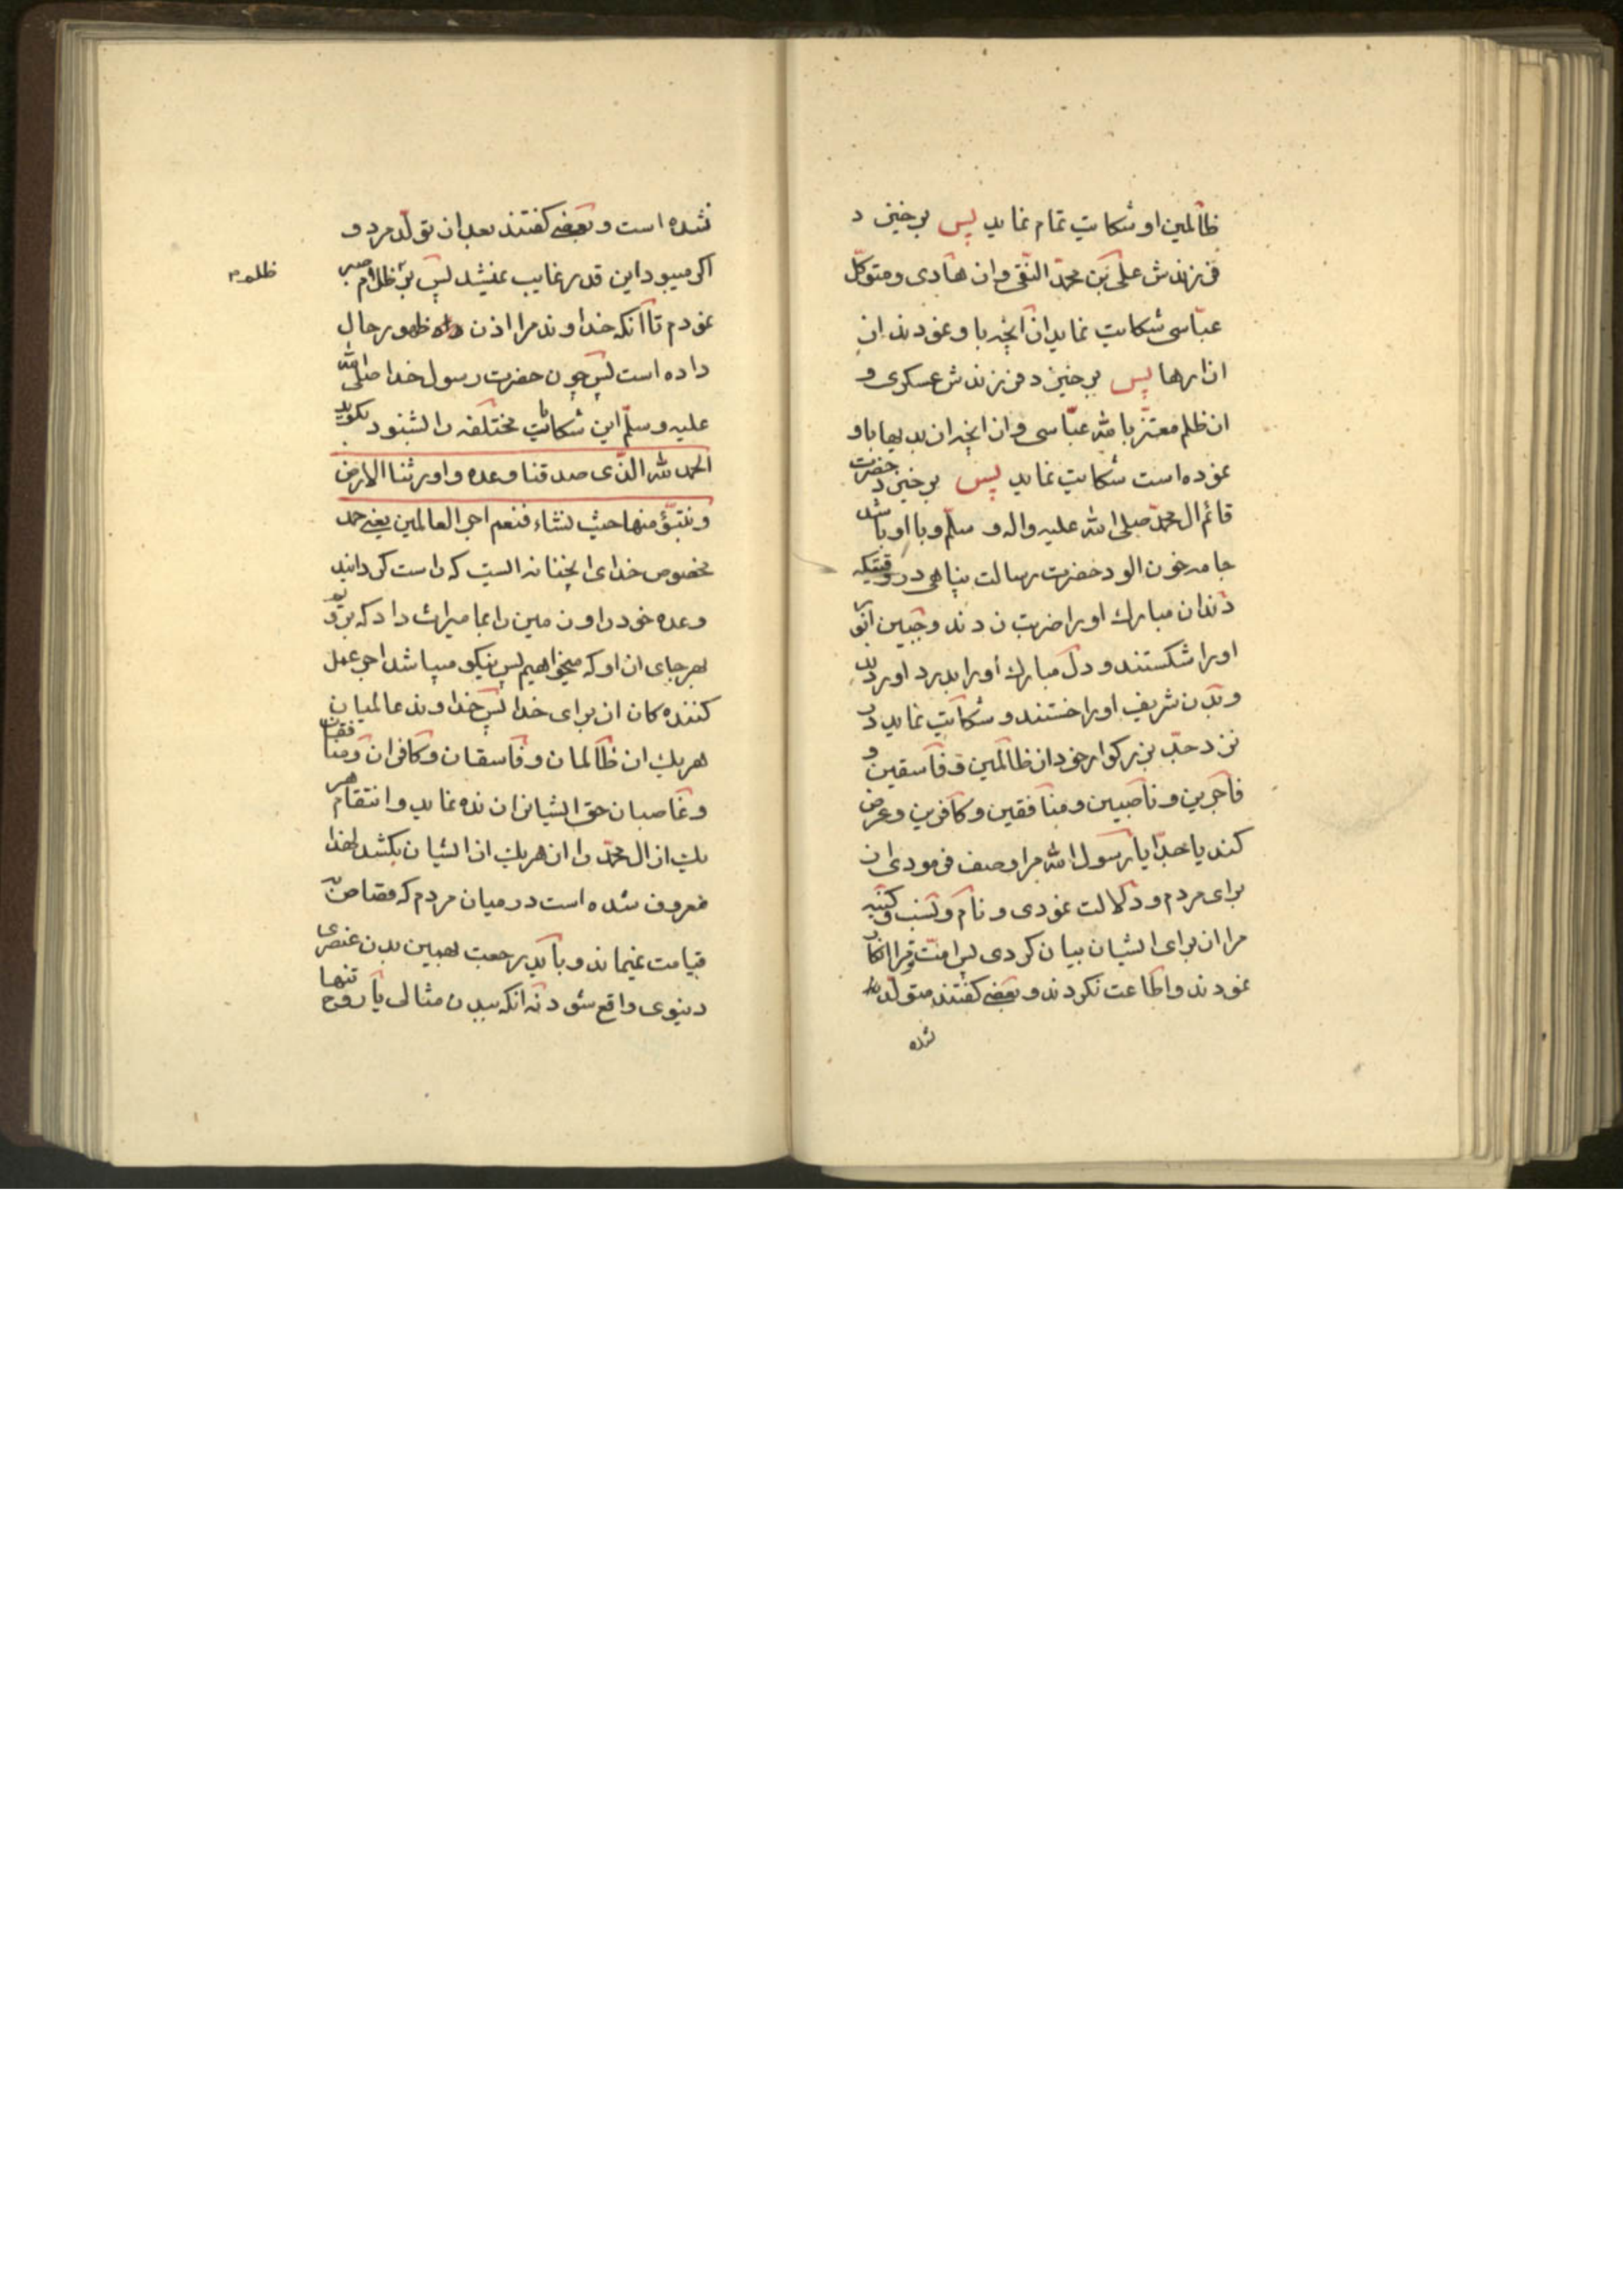 ظالمین او شکایت تمام نماید پس برخیزد
فرزندش علی بن محمد النقی و از هادی و متوکل
عباسی شکایت نماید از آنچه با و نمودند از
ازارها پس برخیزد فرزندش عسکری و
از ظلم معتز بالله عباسی و از انچه از بدیها باو
نموده است شکایت نماید پس برخیزد حضرت
قائم ال محمد صلی الله علیه واله و سلم و با او باشد
جامه خون الود حضرت رسالت پناهی در وقتیکه
دندان مبارك اورا ضربت زدند و جبین انور
اورا شکستند و دل مبارك اورا بدرد اوردند
و بدن شریف اورا خستند و شکایت نماید در
نزد جد بزرکوار خود از ظالمین و فاسقین و
فاجرین و ناصبین و منافقین و کافرین و عرض
کند یا جدا یا رسول الله مرا وصف فرمودی از
برای مردم و دلالت نمودی و نام و نسب و کنیه
مرا از برای ایشان بیان کردی پس امت تو مرا انکار
نمودند و اطاعت نکردند و بعضی کفتند متولد
نشده
نشده است و بعضی کفتند بعد از تولد مرد و
اکر میبود این قدر غایب نمیشد پس بر ظلم صبر
ظلم
نمودم تا انکه خداوند مرا اذن ظهور حال
داده است پس چون حضرت رسول خدا صلی الله
علیه و سلم این شکایات مختلفه را بشنود بکوید
الحمد لله الذی صدقنا وعده و اورثنا الارض
و نتبوؤ منها حیث نشاء فنعم اجر العالمین یعنی حمد
مخصوص خدای انچنانه ایست که راست کردانید
وعده خود را و زمین را بما میراث داد که برو
بهر جای از او که میخواهیم پس نیکو میباشد اجر عمل
کننده کان از برای خدا پس خداوند عالمیان
هریك از ظالمان و فاسقان و کافران و منافقان
و غاصبان حق ایشانرا زنده نماید و انتقام هر
یك از ال محمد را از هریك از ایشان بکشد لهذا
معروف شده است در میان مردم که قصاص
قیامت نمیماند و باید رجعت بهمین بدن عنصری
دنیوی واقع شود نه انکه ببدن مثالی یا روح تنها